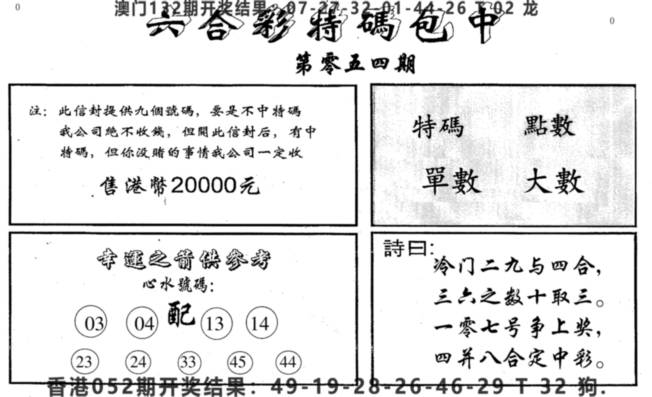 澳门132期开奖结果：07-27-32-01-44-26 T 02 龙
0
0
六合彩特碼包中
第零五四期
注：此信封提供九個號碼，要是不中特碼
我公司绝不收錢，但開此信封后，有中
特碼，但你没賭的事情我公司一定收
售港幣20000元
特碼 點數
單數 大數
幸運之箭供參考
心水號碼：
03 04 配 13 14
23 24 33 45 44
詩曰：
冷门二九与四合，
三六之数十取三。
一零七号争上奖，
四并八合定中彩。
香港052期开奖结果：49-19-28-26-46-29 T 32 狗.